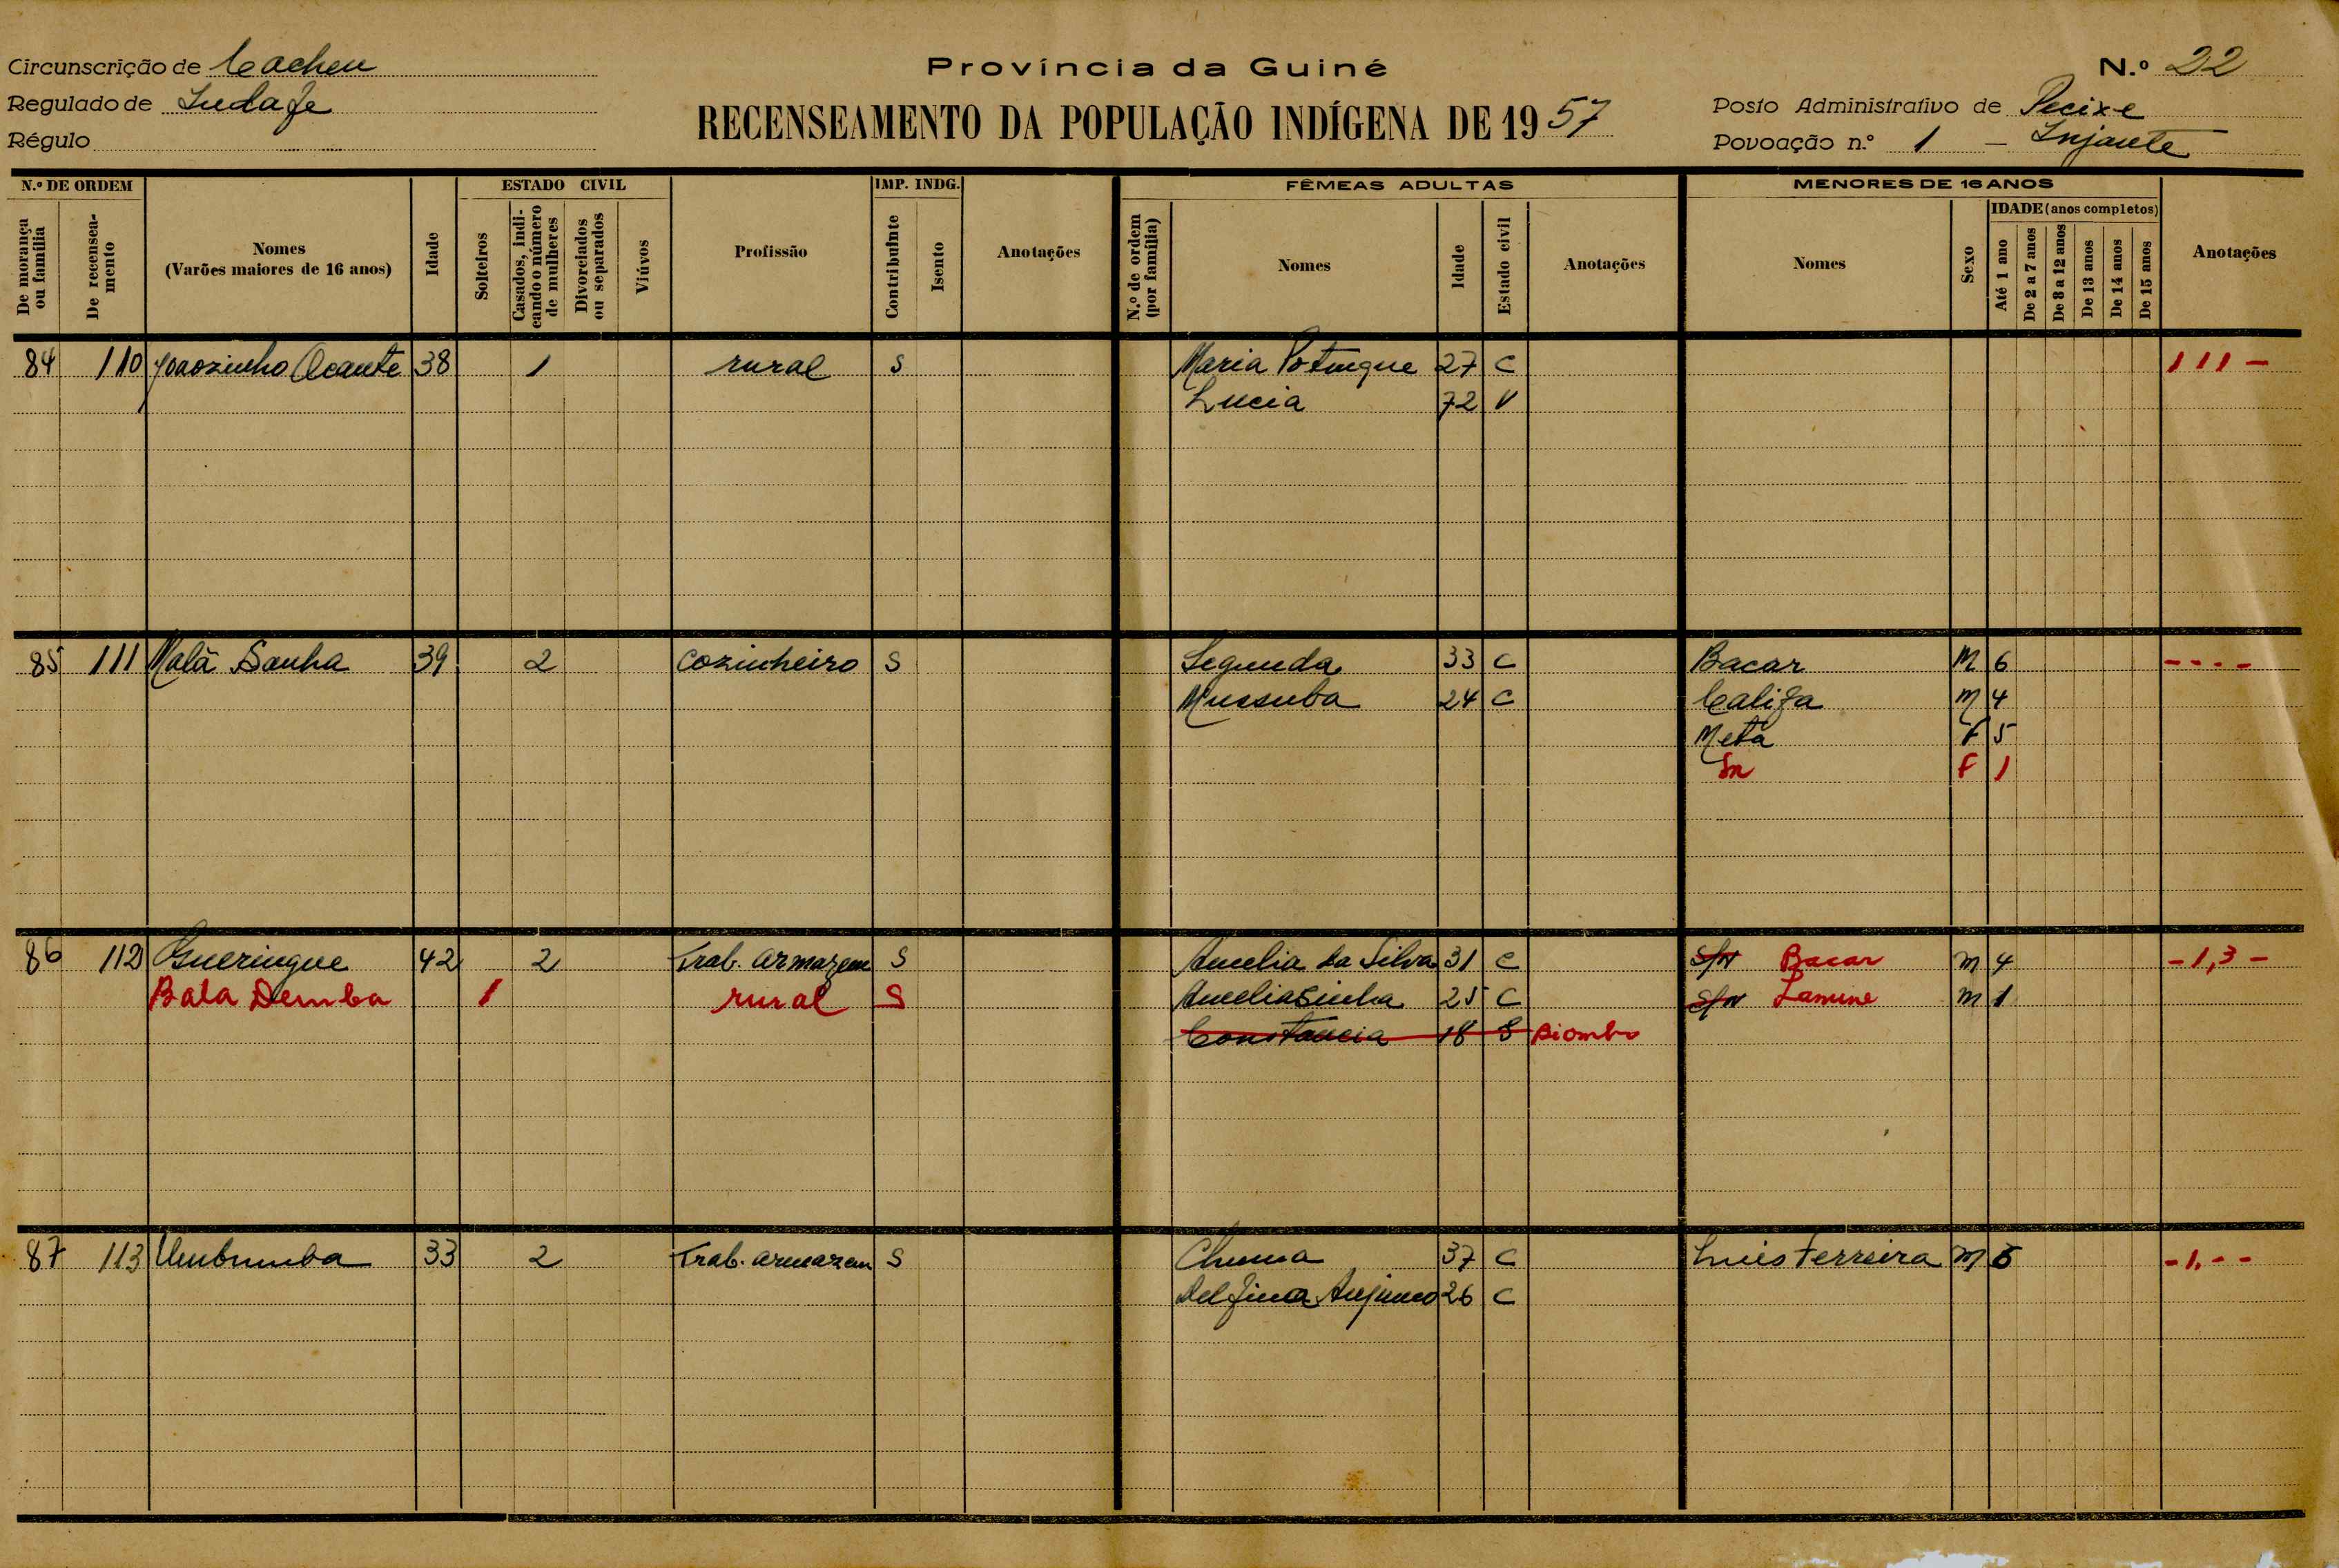 Circunscrição de Cacheu
Regulado de Indafe
Régulo
Província da Guiné
RECENSEAMENTO DA POPULAÇÃO INDÍGENA DE 1957
N.º 22
Posto Administrativo de Pecixe
Povoação n.º 1 - Injante
N.º DE ORDEM
De morança ou família
De recensea-mento
Nomes
(Varões maiores de 16 anos)
Idade
ESTADO CIVIL
Solteiros
Casados, indi-cando o número de mulheres
Divorciados ou separados
Viúvos
Profissão
IMP. INDG.
Contribuinte
Isento
Anotações
FÊMEAS ADULTAS
N.º de ordem (por família)
Nomes
Idade
Estado civil
Anotações
MENORES DE 16 ANOS
Nomes
Sexo
IDADE (anos completos)
Até 1 ano
De 2 a 7 anos
De 8 a 12 anos
De 13 anos
De 14 anos
De 15 anos
Anotações
84 110 Joaozinho Ocante 38 1 rural S Maria Potungue 27 C 111 -
Lucia 72 V
85 111 Malã Sanha 39 2 cozinheiro S Segunda 33 C Bacar M 6 - - - -
Mussuba 24 C Califa M 4
Meta F 5
Sn F 1
86 112 Gueringue 42 2 Trab. armazem S Amelia da Silva 31 C S/N Bacar M 4 - 1,3 -
Bala Demba 1 rural S Ameliasinha 25 C S/N Lamine M 1
Constancia 18 S Biombo
87 113 Umbumba 33 2 Trab. armazem S Chuma 37 C Luis Ferreira M 6 - 1, - -
Delfina 26 C